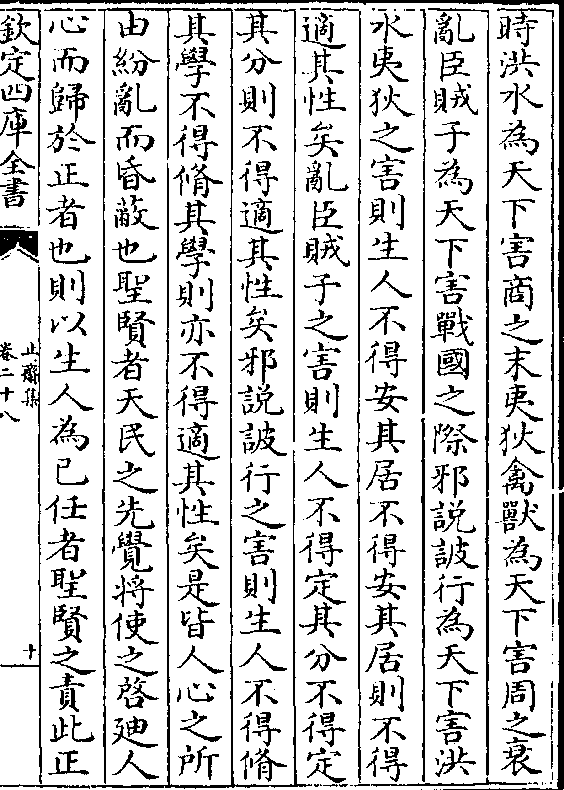 時洪水為天下害商之末夷狄禽獸為天下害周之衰
亂臣賊子為天下害戰國之際邪說詖行為天下害洪
水夷狄之害則生人不得安其居不得安其居則不得
適其性矣亂臣賊子之害則生人不得定其分不得定
其分則不得適其性矣邪說詖行之害則生人不得脩
其學不得脩其學則亦不得適其性矣是皆人心之所
由紛亂而昏蔽也聖賢者天民之先覺將使之啓廸人
心而歸於正者也則以生人為已任者聖賢之責此正
欽定四庫全書
止齋集
卷二十八
十